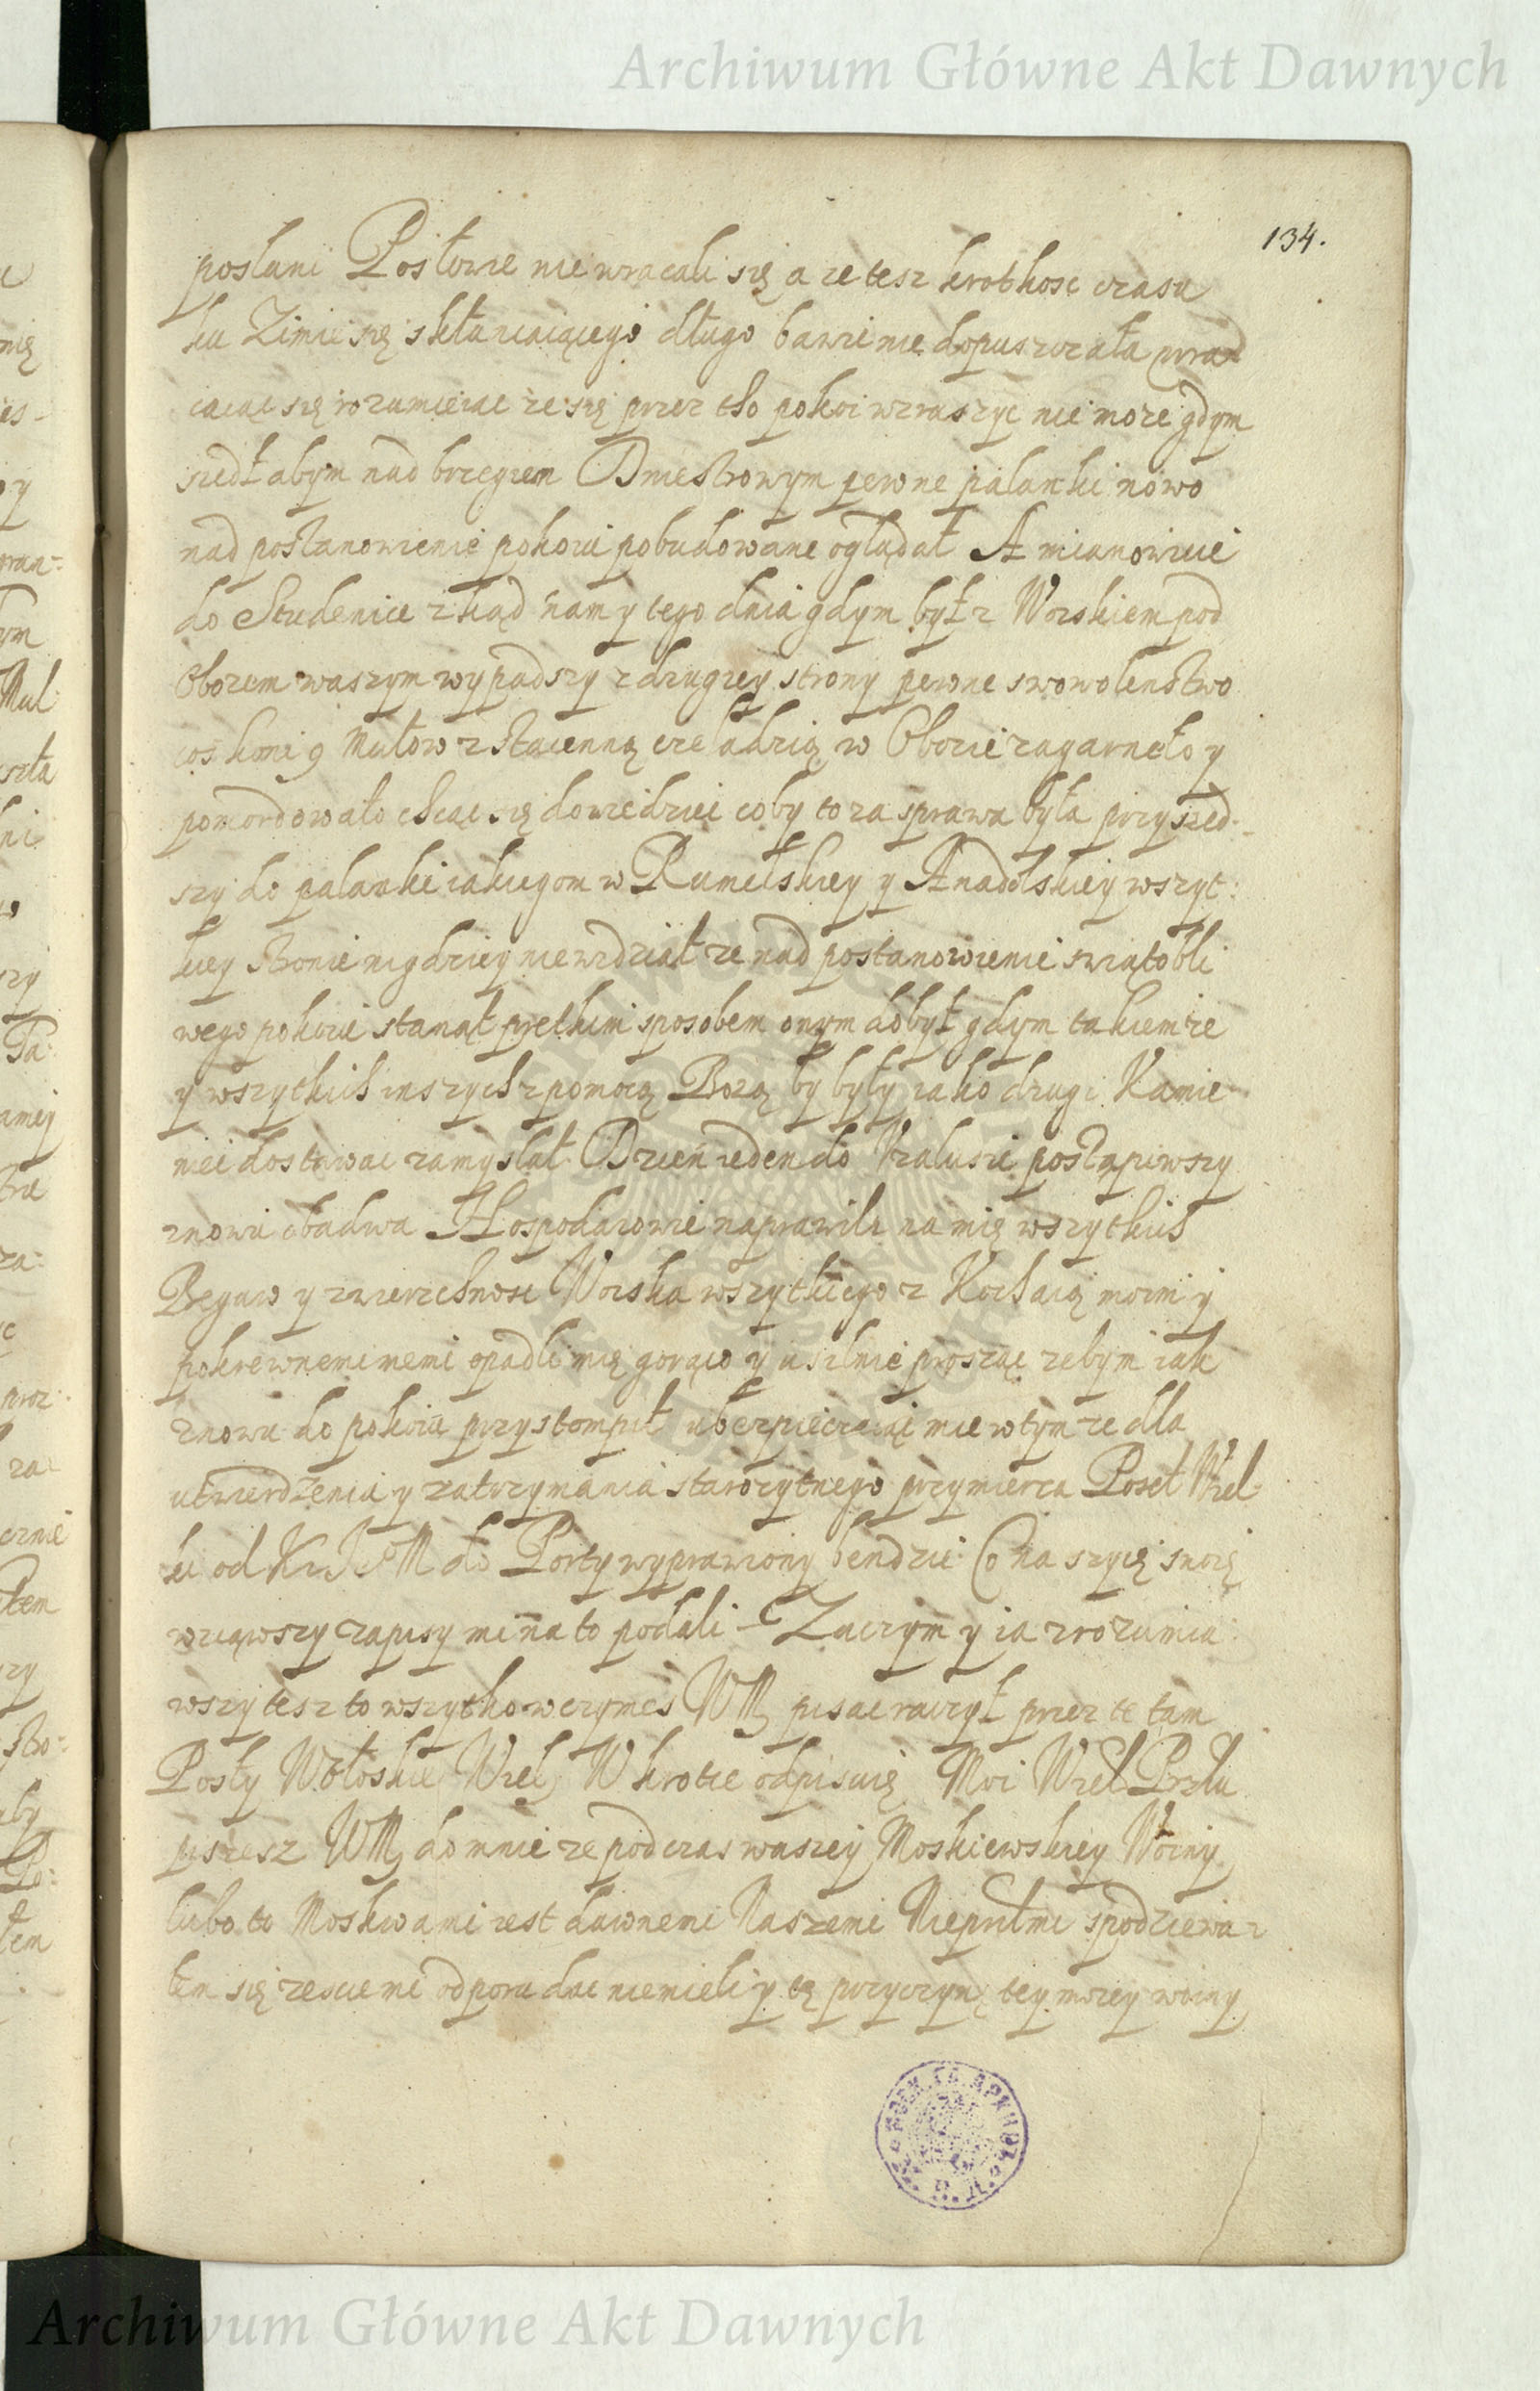 Archiwum Główne Akt Dawnych
134.
posłani Posłowie nie wracali się a że tesz krotkosc czasu
ku Zimie się skłaniaiącego długo bawić nie dopuszczała wra
caiąc się rozumieiąc że się przez tho pokoi wzruszyc nie może gdym
szedł abym nad brzegiem Dniestrowym pewne palanki nowo
nad postanowienie pokoiu pobudowane oglądał A mianowicie
do Studenice zkąd nam y tego dnia gdym był z Woiskiem pod
Obozem waszym wypadszy z drugiey strony pewne swowolenstwo
coś koni y Mułow z staienną czeladzią w Obozie zagarneło y
pomordowało chcąc się dowiedziec coby to za sprawa była przyszed
szy do palanki iakiegom w Rumelskiey y Anadolskiey wszyt:
kiey stronie nigdziey nie widział że nad postanowienie swiątobli
wego pokoiu stanął prętkim sposobem onym dobył gdym takiemże
y wszytkich inszych z pomocą Bozą by były iako drugi Kamie
niec dostawac zamyslał Dzien ieden do Uralusze postąpiwszy
znowu obadwa Hospodarowie naprawili na mię wszytkich
Begow y zwierzchnosc Woiska wszytkiego z Kochaią moim y
pokrewnemi memi opadli mię gorąco y usilnie prosząc zebym iak
znowu do pokoiu przystompił ubezpieczaiąc mie w tym że dla
utwierdzenia y zatrzymania starozytnego przymierza Poseł Wiel
ki od Kr J M do Porty wyprawiony bendzie Co na szyię swoię
wziąwszy zapisy mi na to podali Zaczym y ia zrozumia
wszy tesz to wszytko w czymes WM pisac raczył przez te tam
Posły Wołoskie Wiel W krotce odpisuię Moi Wiel Przlu
piszesz WM do mnie że podczas waszey Moskiewskiey Woiny
lubo to Moskwa mi iest dawnemi Naszemi Nieprłmi spodziewa
łem się zescie mi odporu dac niemieli y tę przyczynę tey moiey woiny
Archiwum Główne Akt Dawnych